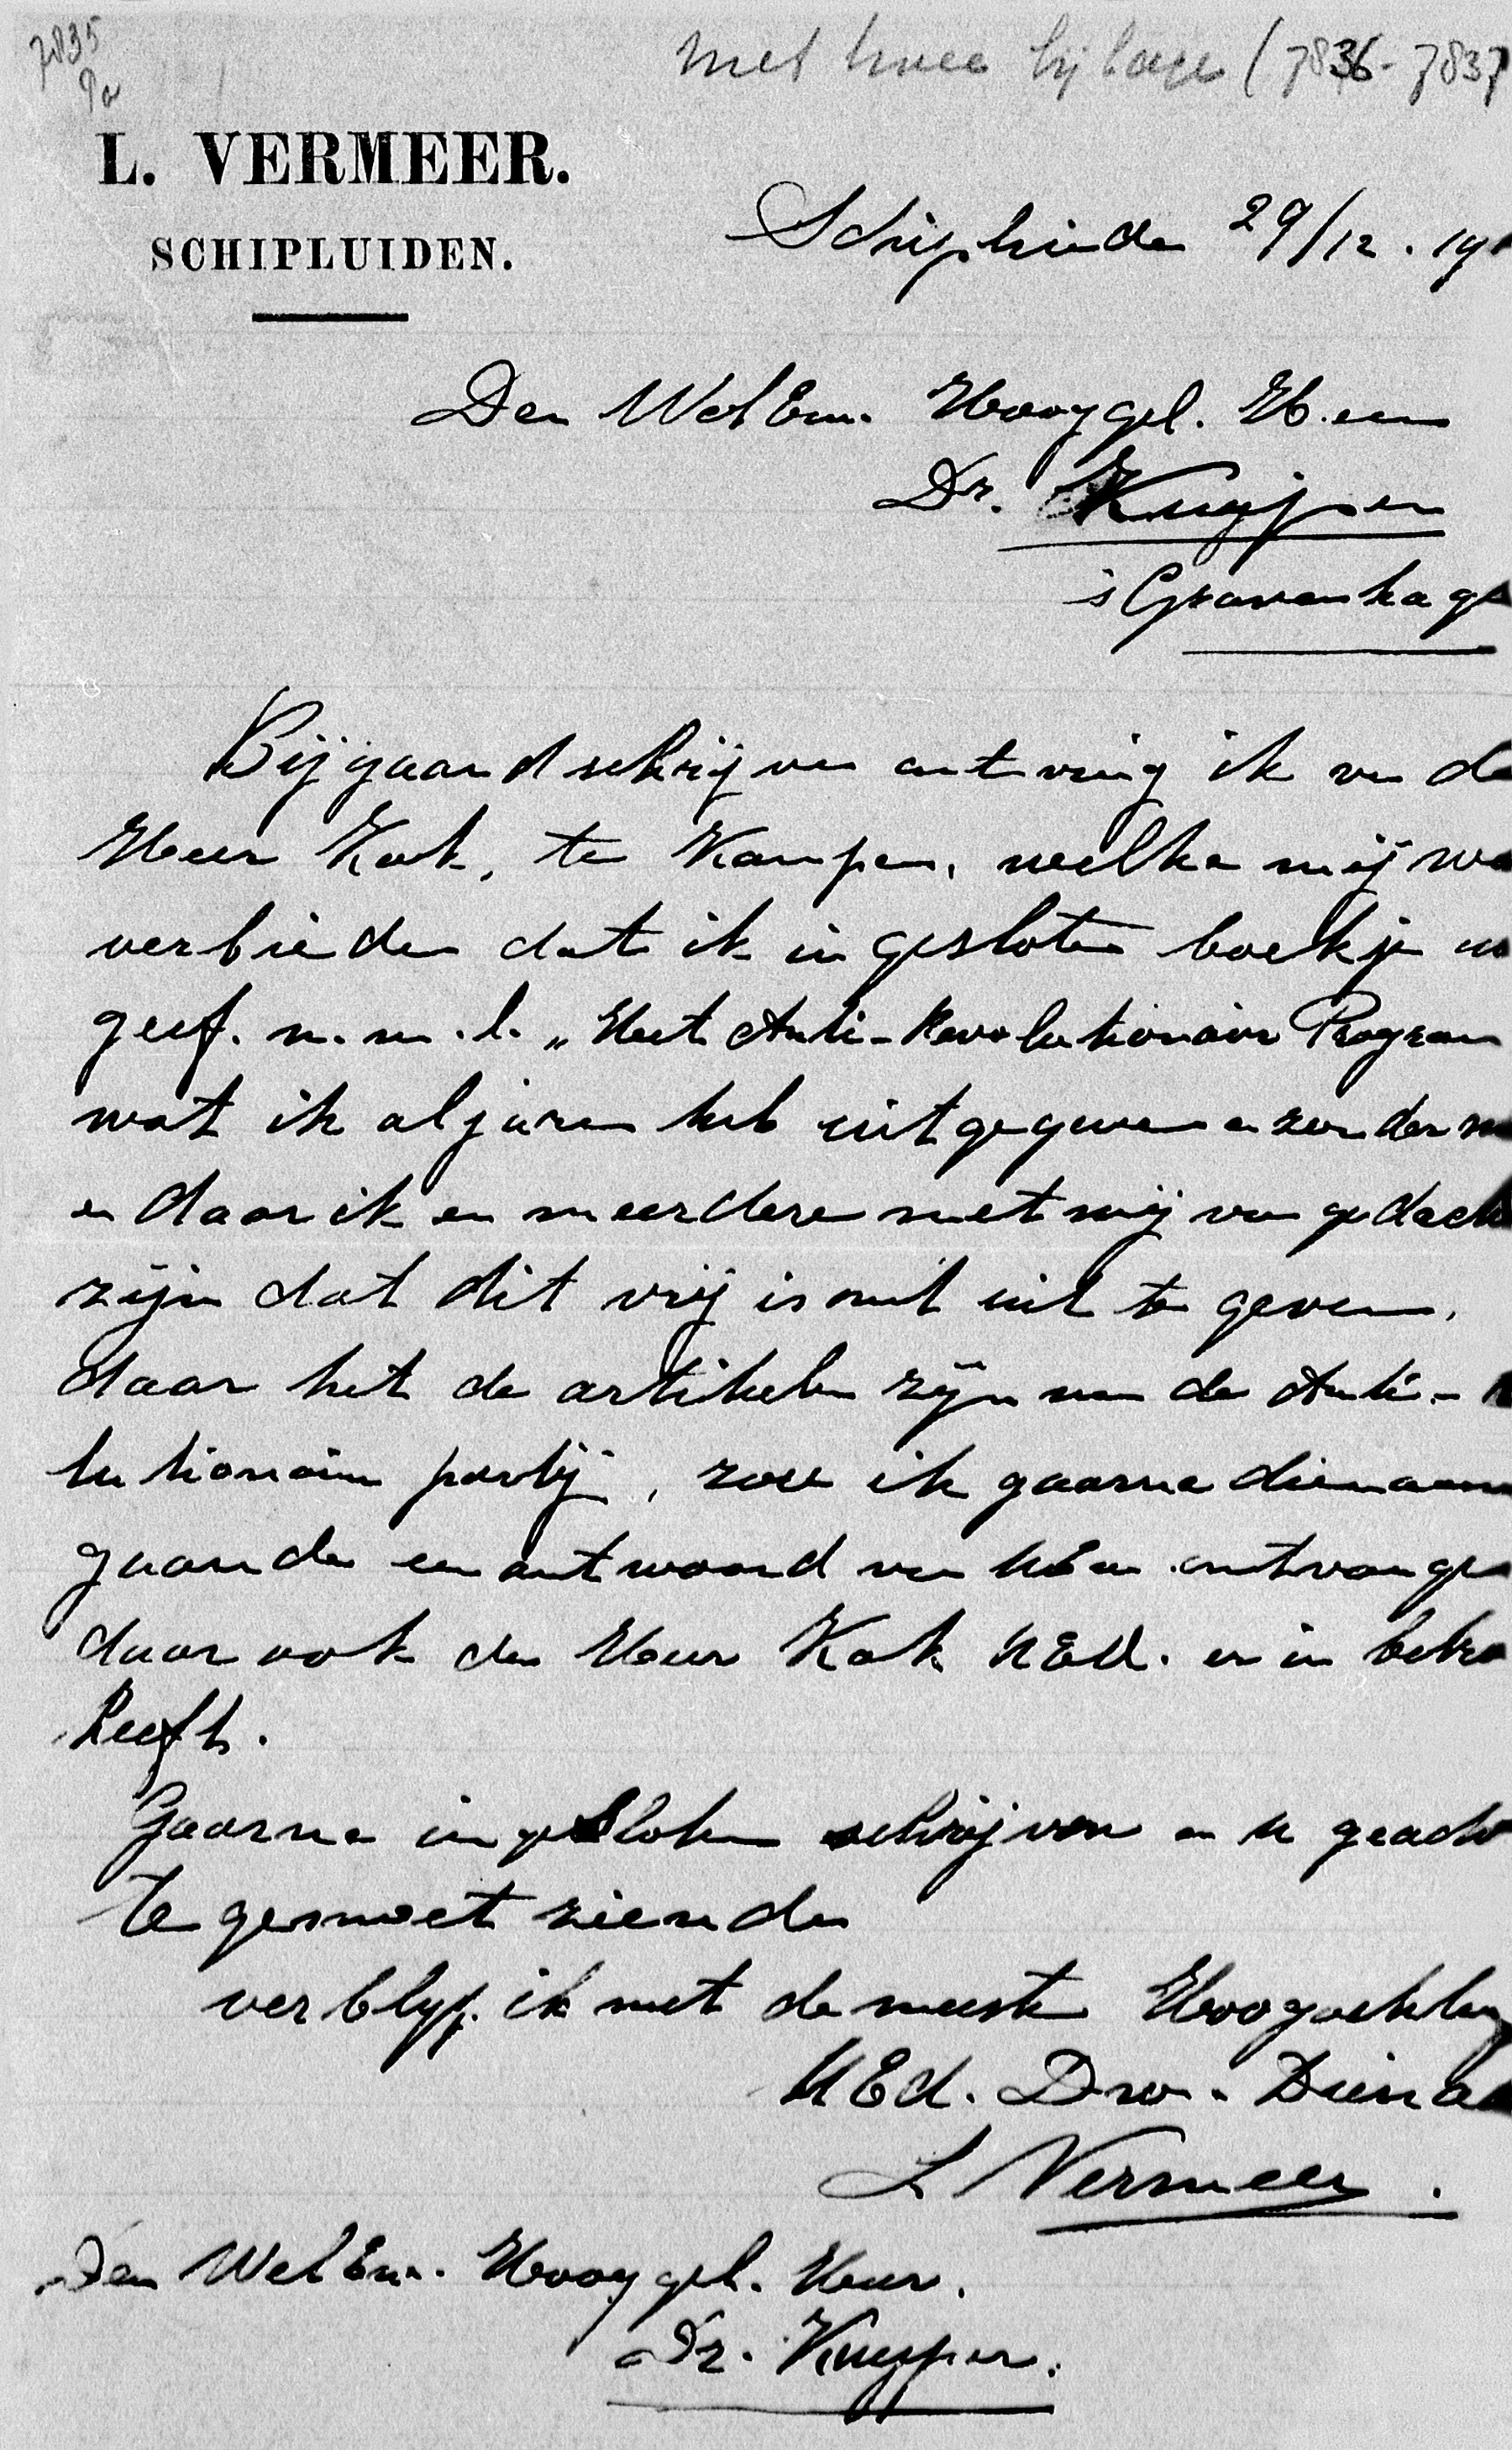 7835
Pa
met twee bijlage (7836-7837
L. VERMEER.
SCHIPLUIDEN.
Schipluiden 29/12. 19
Den WelEw. Hooggel. Heer
Dr. Kuyper
s Gravenhage
Bijgaand schrijven ontving ik van de
Heer Kok, te Kampen, welke mij w
verbieden dat ik ingesloten boekje u
geef. n.m.l. „Het Anti-Revolutionair Program
wat ik al jaren heb uitgegeven en zonder
en daar ik en meerdere met mij van gedach
zijn dat dit vrij is om uit te geven.
daar het de artikelen zijn van de Anti-
lutionaire partij, zou ik gaarne dienaan
gaande een antwoord van UEw ontvange
daar ook de Heer Kok UEd. er in betro
heeft.
Gaarne ingesloten schrijven en u geach
tegemoet ziende
verblijf ik met de meeste Hoogachting
UEd. Dw. Diena
L Vermeer.
Den WelEw. Hooggel. Heer.
Dr. Kuyper.